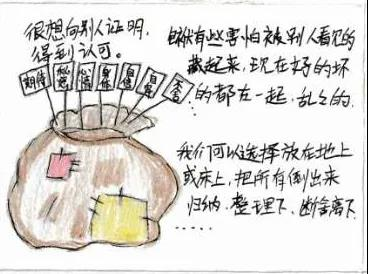 很想向别人证明，
得到认可。
期待
有些害怕被别人看见的
藏起来，现在好的坏
的都在一起，乱乱的．
……
我们可以选择放在地上
或床上，把所有倒出来
归纳．整理下，断舍离下．
……